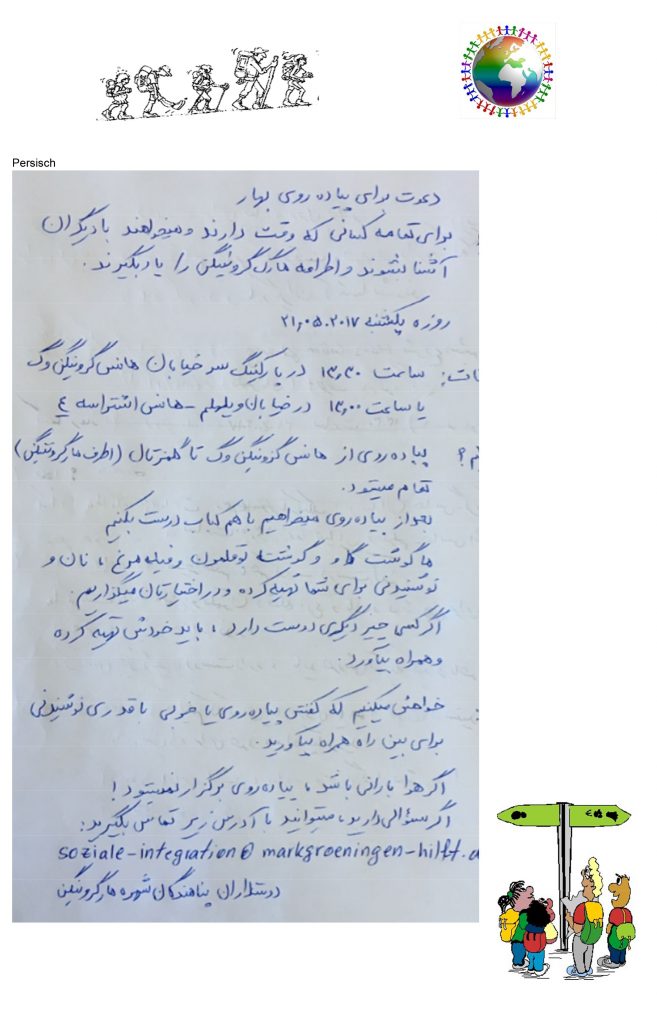 Persisch
دعوت برای پیاده روی بهار
برای تمامه کسانی که وقت دارند و میخواهند با دیگران
آشنا بشوند و اطرافه مارک گرونینگن را یاد بگیرند.
روزه یکشنبه ۲۱,۰۵,۲۰۱۷
ساعت ۱۳,۳۰ در پارکینگ سر خیابان هانس گرونینگن وگ
یا ساعت ۱۳,۰۰ در خیابان ویلهلم - هانس اشتراسه ٤
پیاده روی از هانس گرونینگن وگ تا گلمزتال (اطرف مارگرونینگن)
تمام میشود.
بعد از پیاده روی میخواهیم با هم کباب درست بکنیم
ما گوشت گاو و گوشت بوقلمون و فیله مرغ ، نان و
نوشیدنی برای شما تهیه کرده و در اختیارتان میگذاریم.
اگر کسی چیز دیگری دوست دارد ، باید خودش تهیه کرده
و همراه بیآورد.
خواهش میکنیم که کفش پیاده روی یا خوبی با قدری نوشیدنی
برای بین راه همراه بیآورید.
اگر هوا بارانی باشد ، پیاده روی برگزار نمیشود !
اگر سؤالی دارید ، میتوانید با آدرس زیر تماس بگیرید :
soziale-integration@markgroeningen-hilft.d
دوستداران پناهندگان شهره مارگرونینگن